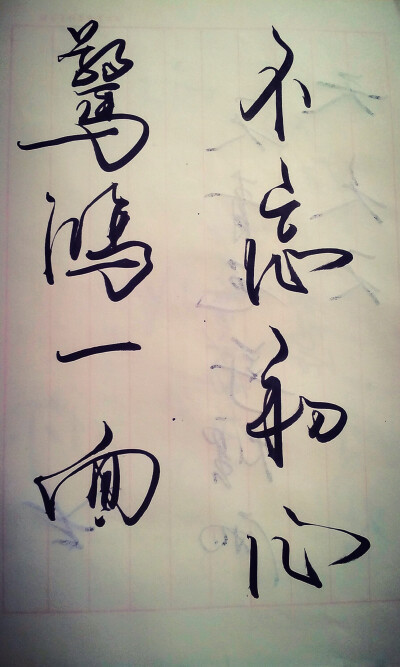 不忘初心
驚鴻一面